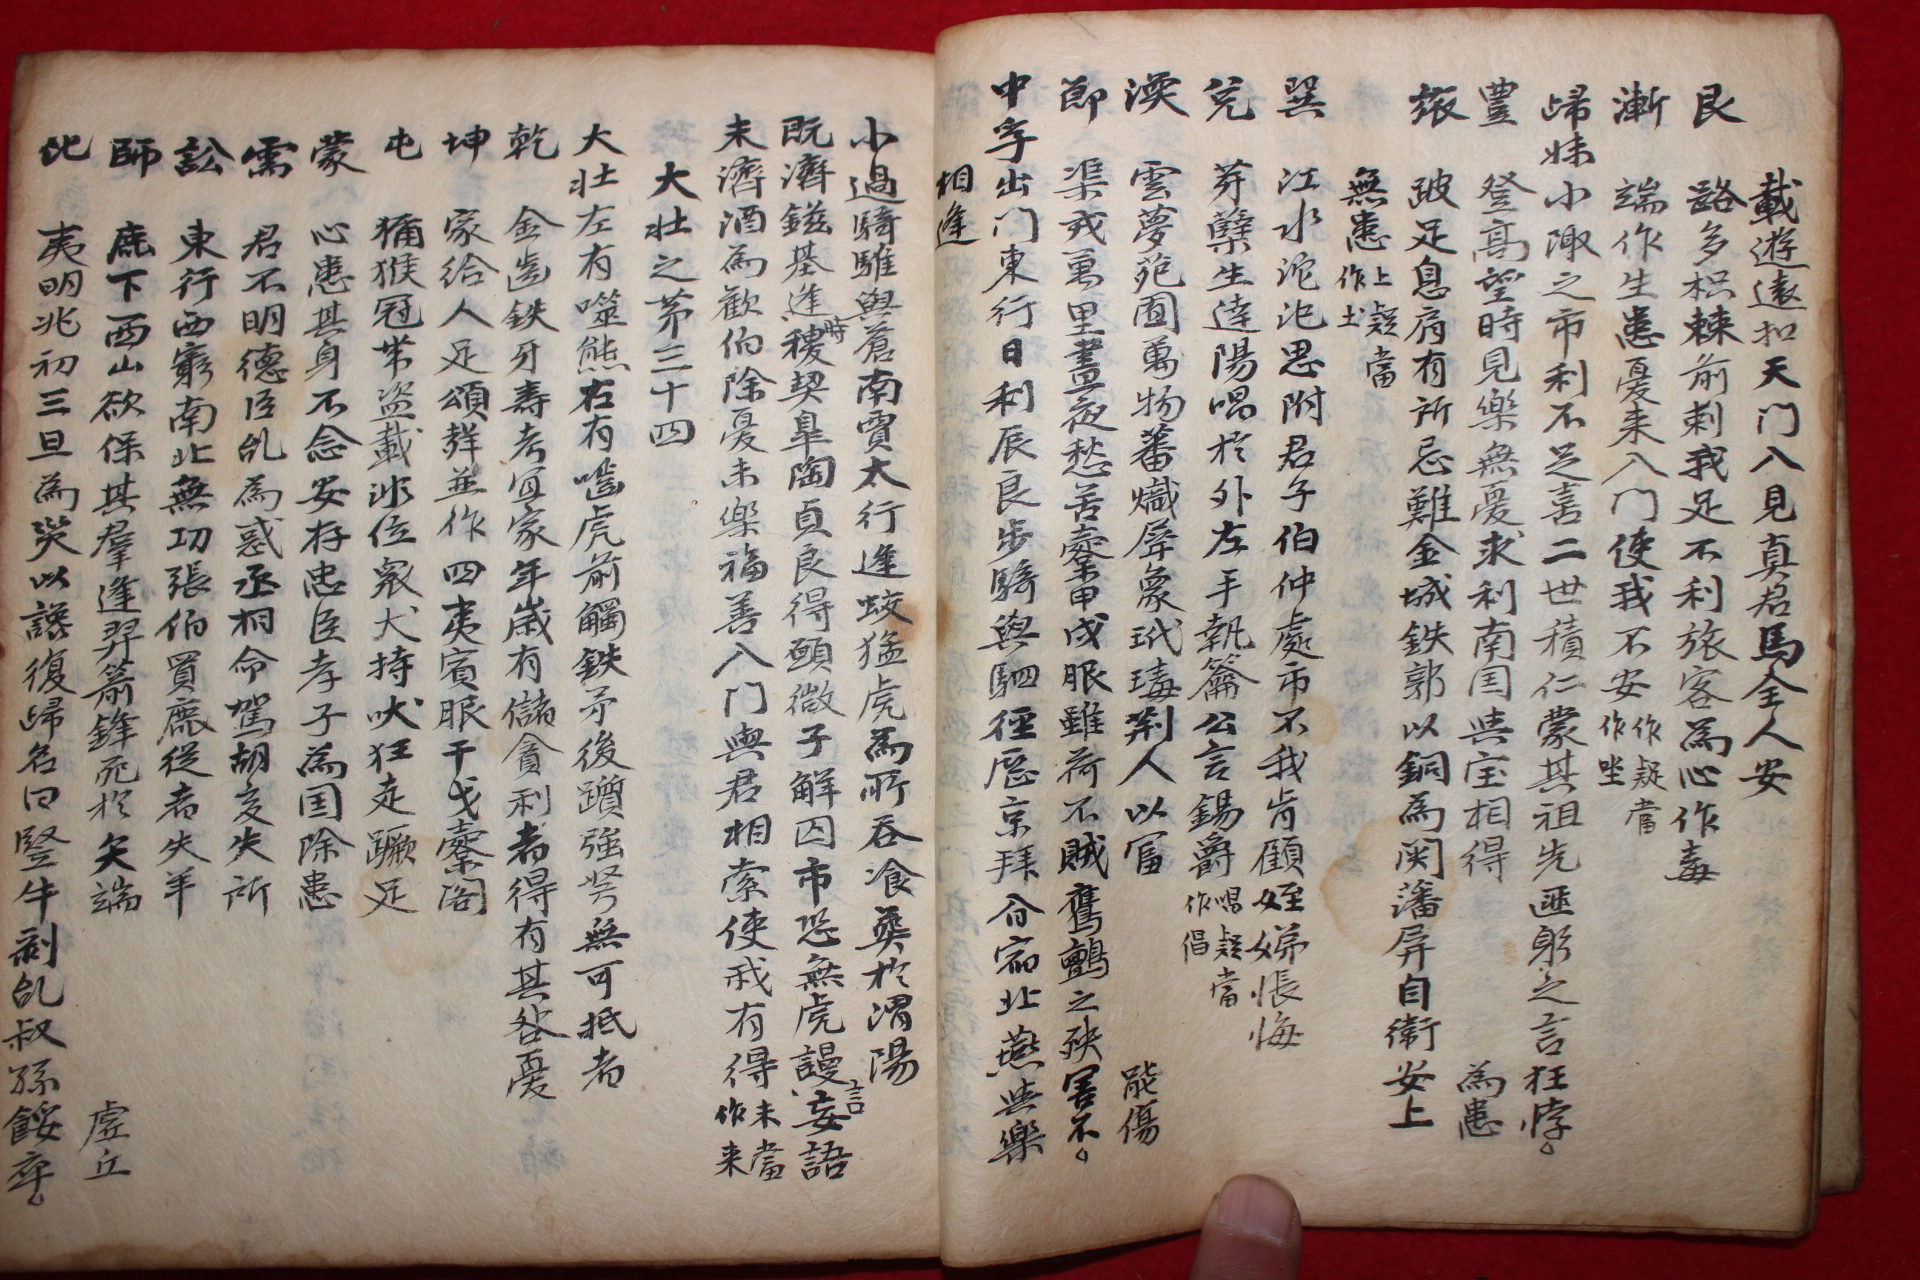 載遊遠扣天門入見真君馬全人安
艮 路多枳棘前刺我足不利旅客為心作毒
漸 端作生患憂来入門使我不安 作疑當作坐
歸妹 小陬之市利不足喜二世積仁蒙其祖先匪躬之言狂悖 為患
豊 登高望時見樂無憂求利南国與宝相得
旅 跛足息肩有所忌難金城鉄郭以銅為関藩屏自衛安上
無患 上疑當作土
巽 江水沱汜思附君子伯仲處市不我肯顧姪娣悵悔
兌 芽蘖生逹陽唱於外左手執籥公言錫爵 唱疑當作倡
渙 雲夢苑囿萬物蕃熾犀象玳瑇荆人以冨
節 渠戎萬里晝夜愁苦櫜甲戍眼雖荷不賊鷹鸇之殃害不能傷
中孚 出门東行日利辰良步騎與駟徑厯京拜合宿北燕與樂
相逢
小過 騎騅與蒼南賈太行逢蛟猛虎為所吞飡塟於渭陽
既濟 鎡基逢時稷契皐陶貞良得頤微子解囚市恐無虎謾妄言語
未濟 酒為歡伯除憂未樂福善入门與君相索使我有得 未當作来
大壮之苐三十四
大壮 左有噬熊右有囓虎前觸鉄矛後躓強弩無可抵者
乾 金齒鉄牙壽考宜家年歲有儲貪利者得有其咎憂
坤 家給人足頌聲並作四夷賓服干戈櫜閣
屯 獼猴冠帯盗載氷位衆犬持吠狂走蹶足
蒙 心患其身不念安存忠臣孝子為国除患
需 君不明德臣乱為惑丞相命駕胡亥失所
訟 東行西窮南北無功張伯買鹿從者失羊
師 鹿下西山欲保其羣逢羿箭鋒死於矢端
比 夷明兆初三旦為災以讒復歸名曰竪牛剥乱叔孫餒卒 虗丘